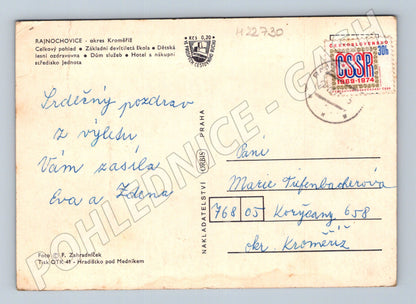 RAJNOCHOVICE - okres Kroměříž
Celkový pohled • Základní devítiletá škola • Dětská
lesní ozdravovna • Dům služeb • Hotel s nákupní
středisko Jednota
Kčs 0,20
H22730
ČESKOSLOVENSKO
30h
ČSSR
1969-1974
Srdečný pozdrav
z výletu
Vám zasílá
Eva a Zdena
NAKLADATELSTVÍ ORBIS PRAHA
Paní
Marie Tiefenbacherová
768 05 Koryčany 658
okr. Kroměříž
Foto: F. Zahradníček
Tisk OTK 41 - Hradištko pod Medníkem
POHLEDNICE - GASH